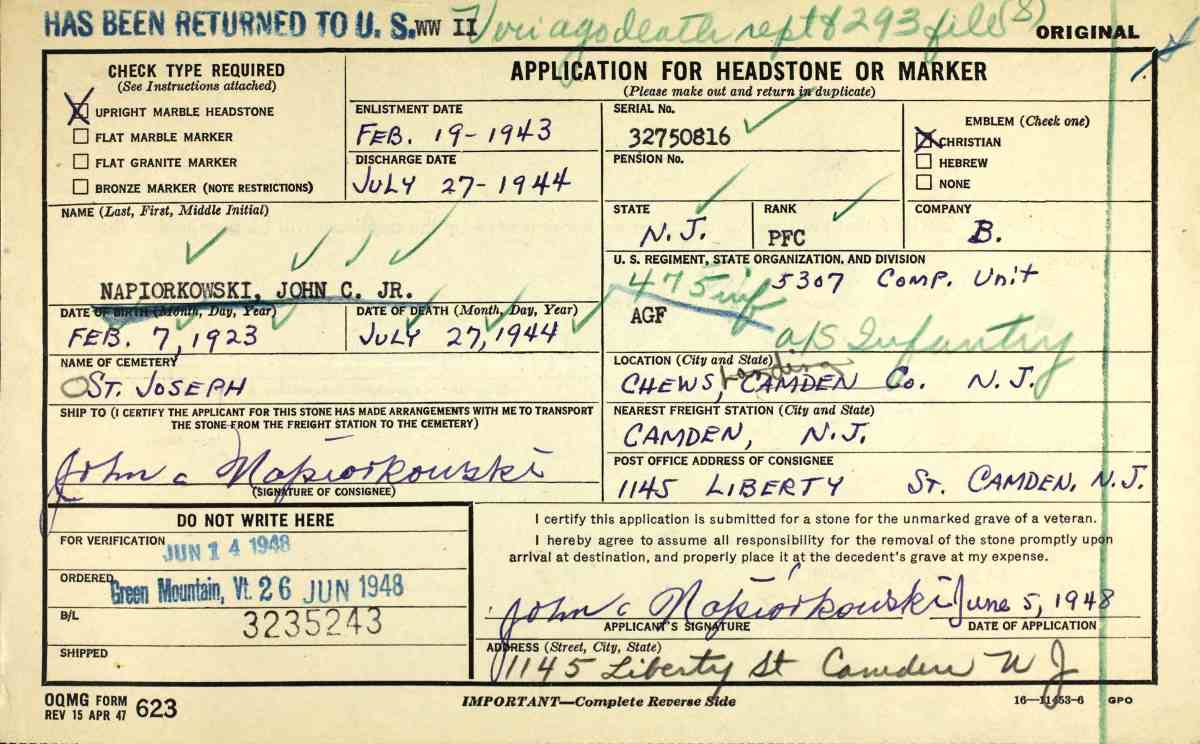 HAS BEEN RETURNED TO U. S. WW II Veri ago death rept & 293 file (8) ORIGINAL
CHECK TYPE REQUIRED
(See Instructions attached)
UPRIGHT MARBLE HEADSTONE
FLAT MARBLE MARKER
FLAT GRANITE MARKER
BRONZE MARKER (NOTE RESTRICTIONS)
APPLICATION FOR HEADSTONE OR MARKER
(Please make out and return in duplicate)
ENLISTMENT DATE
FEB. 19-1943
DISCHARGE DATE
JULY 27-1944
SERIAL No.
32750816
PENSION No.
EMBLEM (Check one)
CHRISTIAN
HEBREW
NONE
NAME (Last, First, Middle Initial)
NAPIORKOWSKI, JOHN C. JR.
STATE
N.J.
RANK
PFC
COMPANY
B.
U. S. REGIMENT, STATE ORGANIZATION, AND DIVISION
475 inf 5307 COMP. UNIT
AGF
a/s Infantry
DATE OF BIRTH (Month, Day, Year)
FEB. 7, 1923
DATE OF DEATH (Month, Day, Year)
JULY 27, 1944
NAME OF CEMETERY
ST. JOSEPH
LOCATION (City and State)
CHEWS, Landing CAMDEN Co. N.J.
SHIP TO (I CERTIFY THE APPLICANT FOR THIS STONE HAS MADE ARRANGEMENTS WITH ME TO TRANSPORT
THE STONE FROM THE FREIGHT STATION TO THE CEMETERY)
John C Napiorkowski
(SIGNATURE OF CONSIGNEE)
NEAREST FREIGHT STATION (City and State)
CAMDEN, N.J.
POST OFFICE ADDRESS OF CONSIGNEE
1145 LIBERTY ST. CAMDEN, N.J.
DO NOT WRITE HERE
FOR VERIFICATION
JUN 14 1948
ORDERED
Green Mountain, Vt. 26 JUN 1948
B/L
3235243
SHIPPED
I certify this application is submitted for a stone for the unmarked grave of a veteran.
I hereby agree to assume all responsibility for the removal of the stone promptly upon
arrival at destination, and properly place it at the decedent's grave at my expense.
John C Napiorkowski June 5, 1948
APPLICANT'S SIGNATURE DATE OF APPLICATION
ADDRESS (Street, City, State)
1145 Liberty St Camden N J
OQMG FORM
REV 15 APR 47 623
IMPORTANT—Complete Reverse Side
16—11453-6 GPO